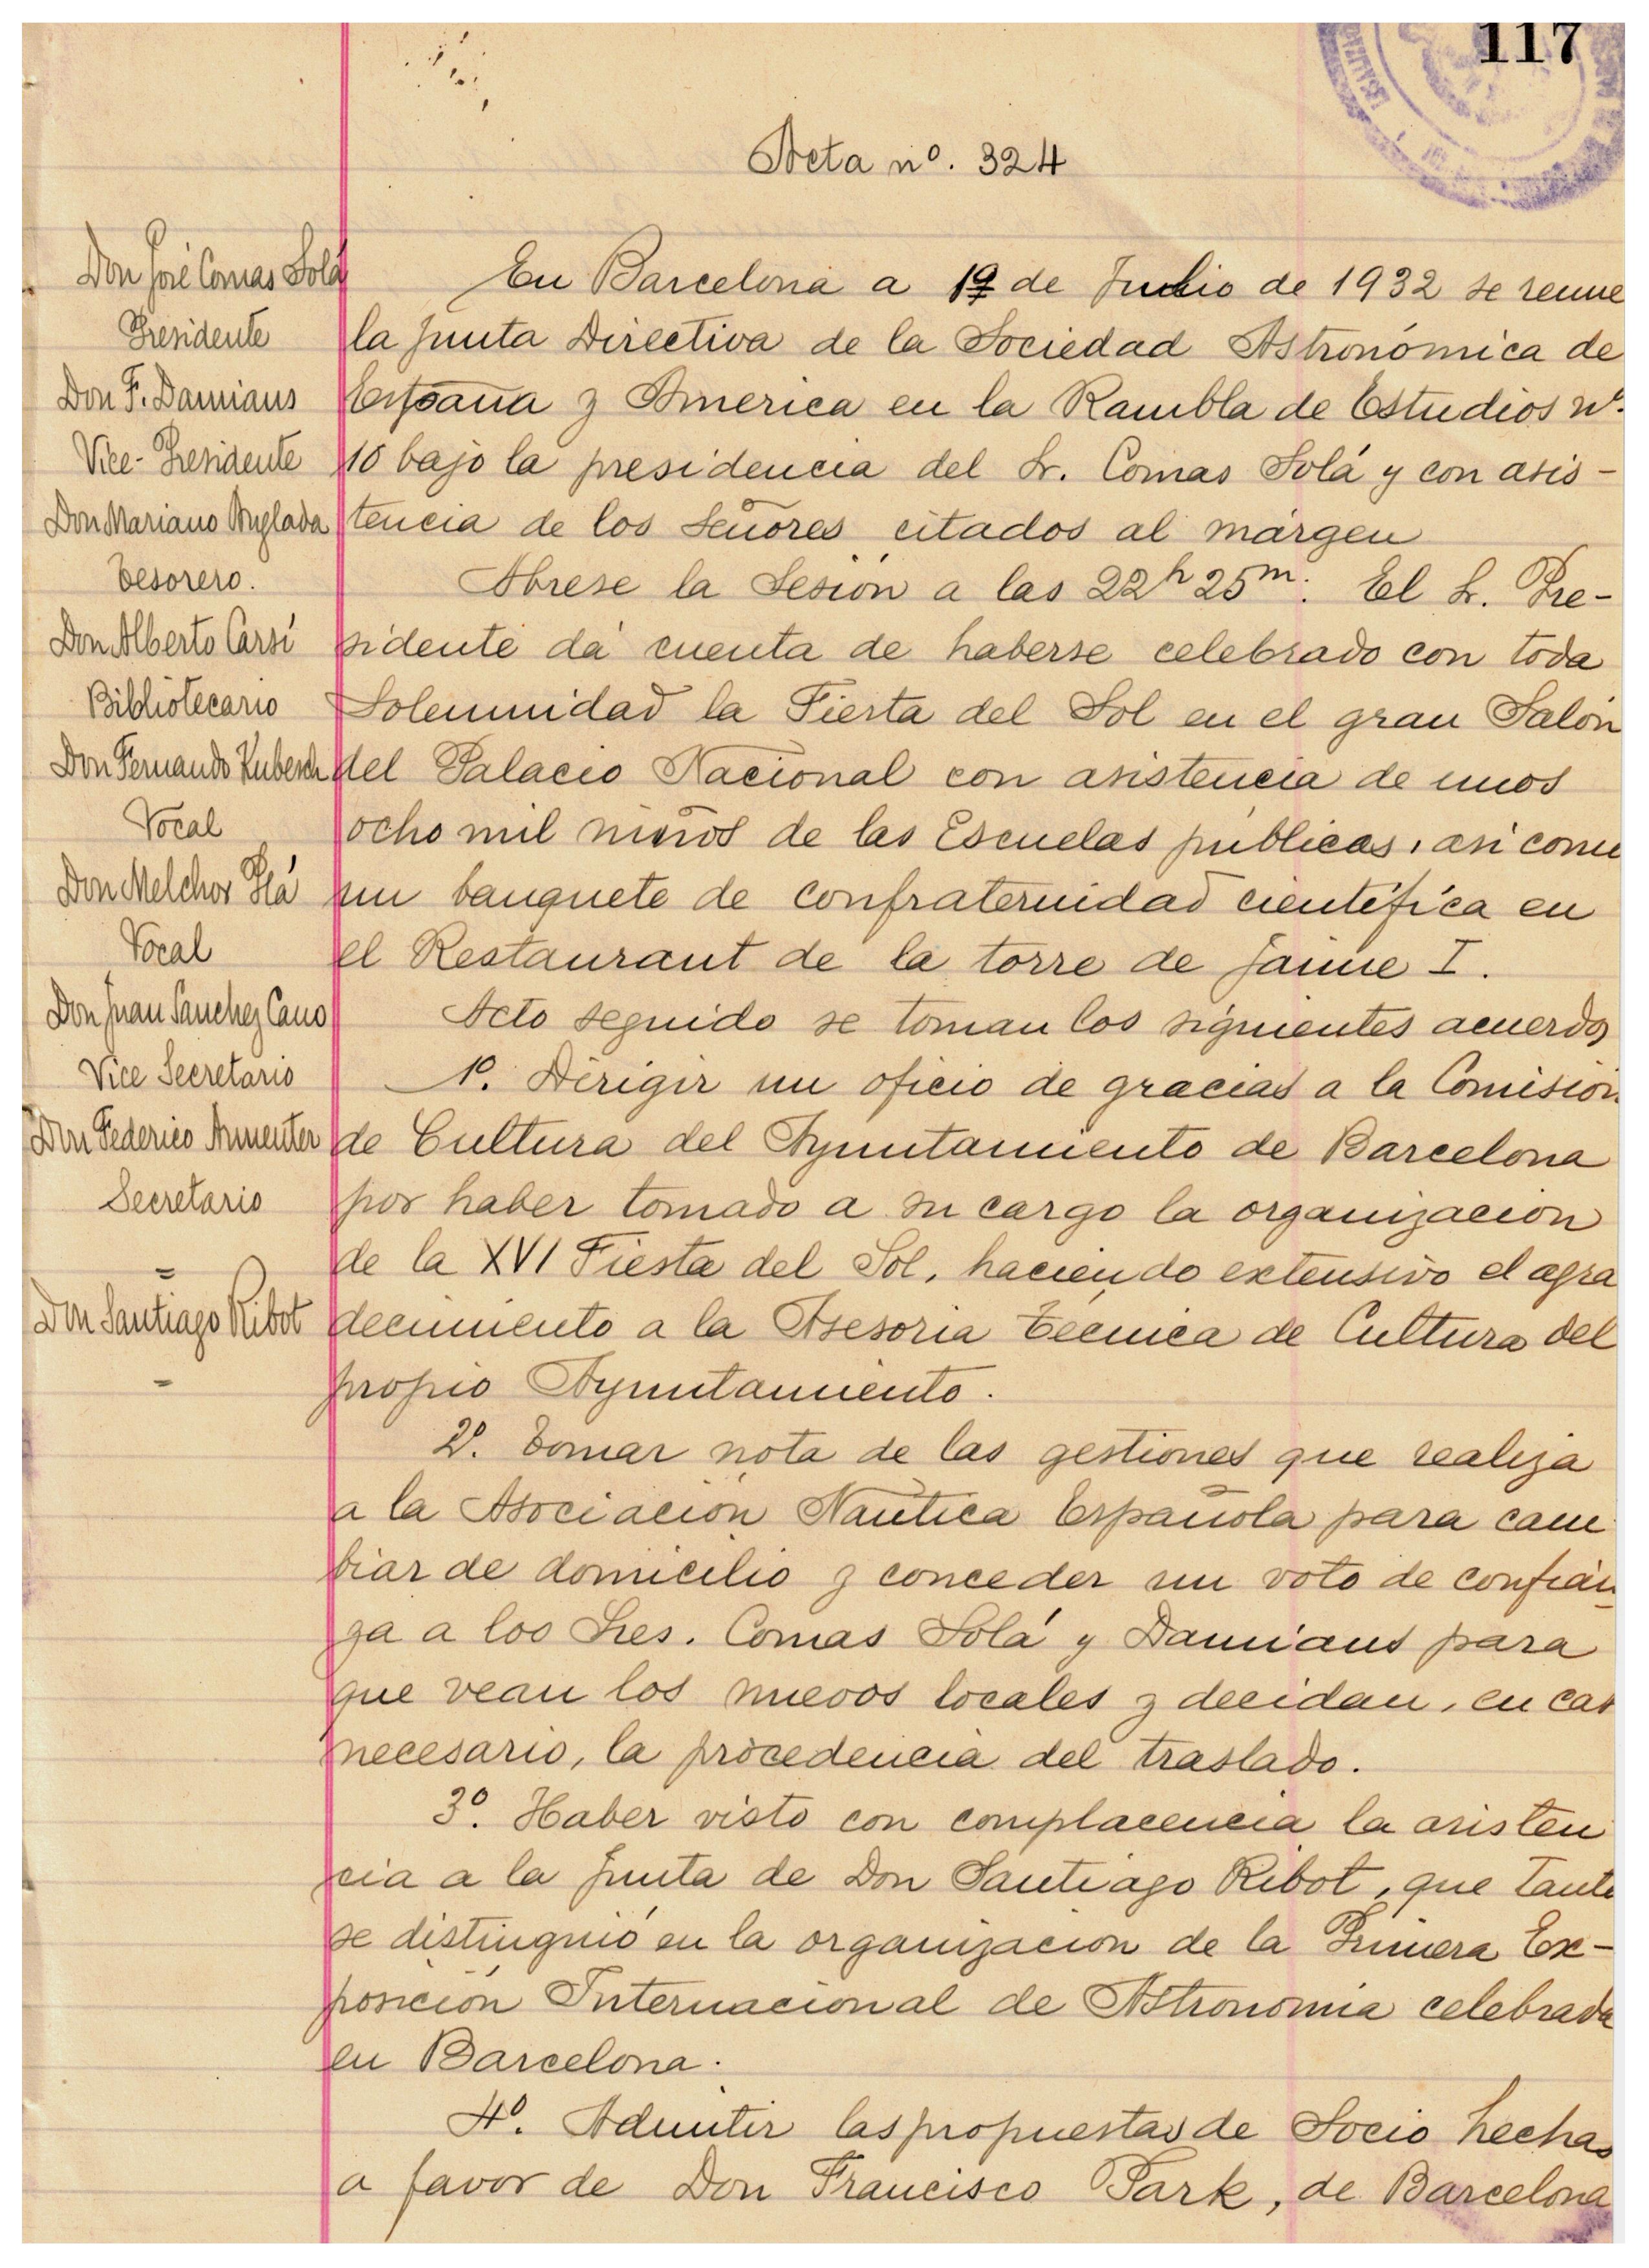 117
Acta nº. 324
Don José Comas Solá
Presidente
Don F. Damians
Vice-Presidente
Don Mariano Anglada
Tesorero.
Don Alberto Carsí
Bibliotecario
Don Fernando
Vocal
Don Melchor Plá
Vocal
Don Juan Sanchez Cano
Vice Secretario
Don Federico Armenter
Secretario
Don Santiago Ribot
En Barcelona a de de 1932 se reune
la Junta Directiva de la Sociedad Astronómica de
España y America en la Rambla de Estudios nº.
10 bajo la presidencia del Sr. Comas Solá y con asis-
tencia de los señores citados al márgen
Abrese la Sesión a las 22h 25m. El Sr. Pre-
sidente dá cuenta de haberse celebrado con toda
Solemnidad la Fiesta del Sol en el gran Salón
del Palacio Nacional con asistencia de unos
ocho mil niños de las Escuelas públicas, asi como
un banquete de confraternidad científica en
el Restaurant de la torre de Jaime I.
Acto seguido se toman los siguientes acuerdos
1º. Dirigir un oficio de gracias a la Comisión
de Cultura del Ayuntamiento de Barcelona
por haber tomado a su cargo la organización
de la XVI Fiesta del Sol, haciendo extensivo el agra
decimiento a la Asesoria Técnica de Cultura del
propio Ayuntamiento.
2º. Tomar nota de las gestiones que realiza
a la Asociación Náutica Española para cam
biar de domicilio y conceder un voto de confian
za a los Sres. Comas Solá y Damians para
que vean los nuevos locales y decidan, en cas
necesario, la procedencia del traslado.
3º. Haber visto con complacencia la asisten
cia a la Junta de Don Santiago Ribot, que tanto
se distinguió en la organización de la Primera Ex-
posición Internacional de Astronomia celebrada
en Barcelona.
4º. Admitir las propuestas de Socio hechas
a favor de Don Francisco Park, de Barcelona